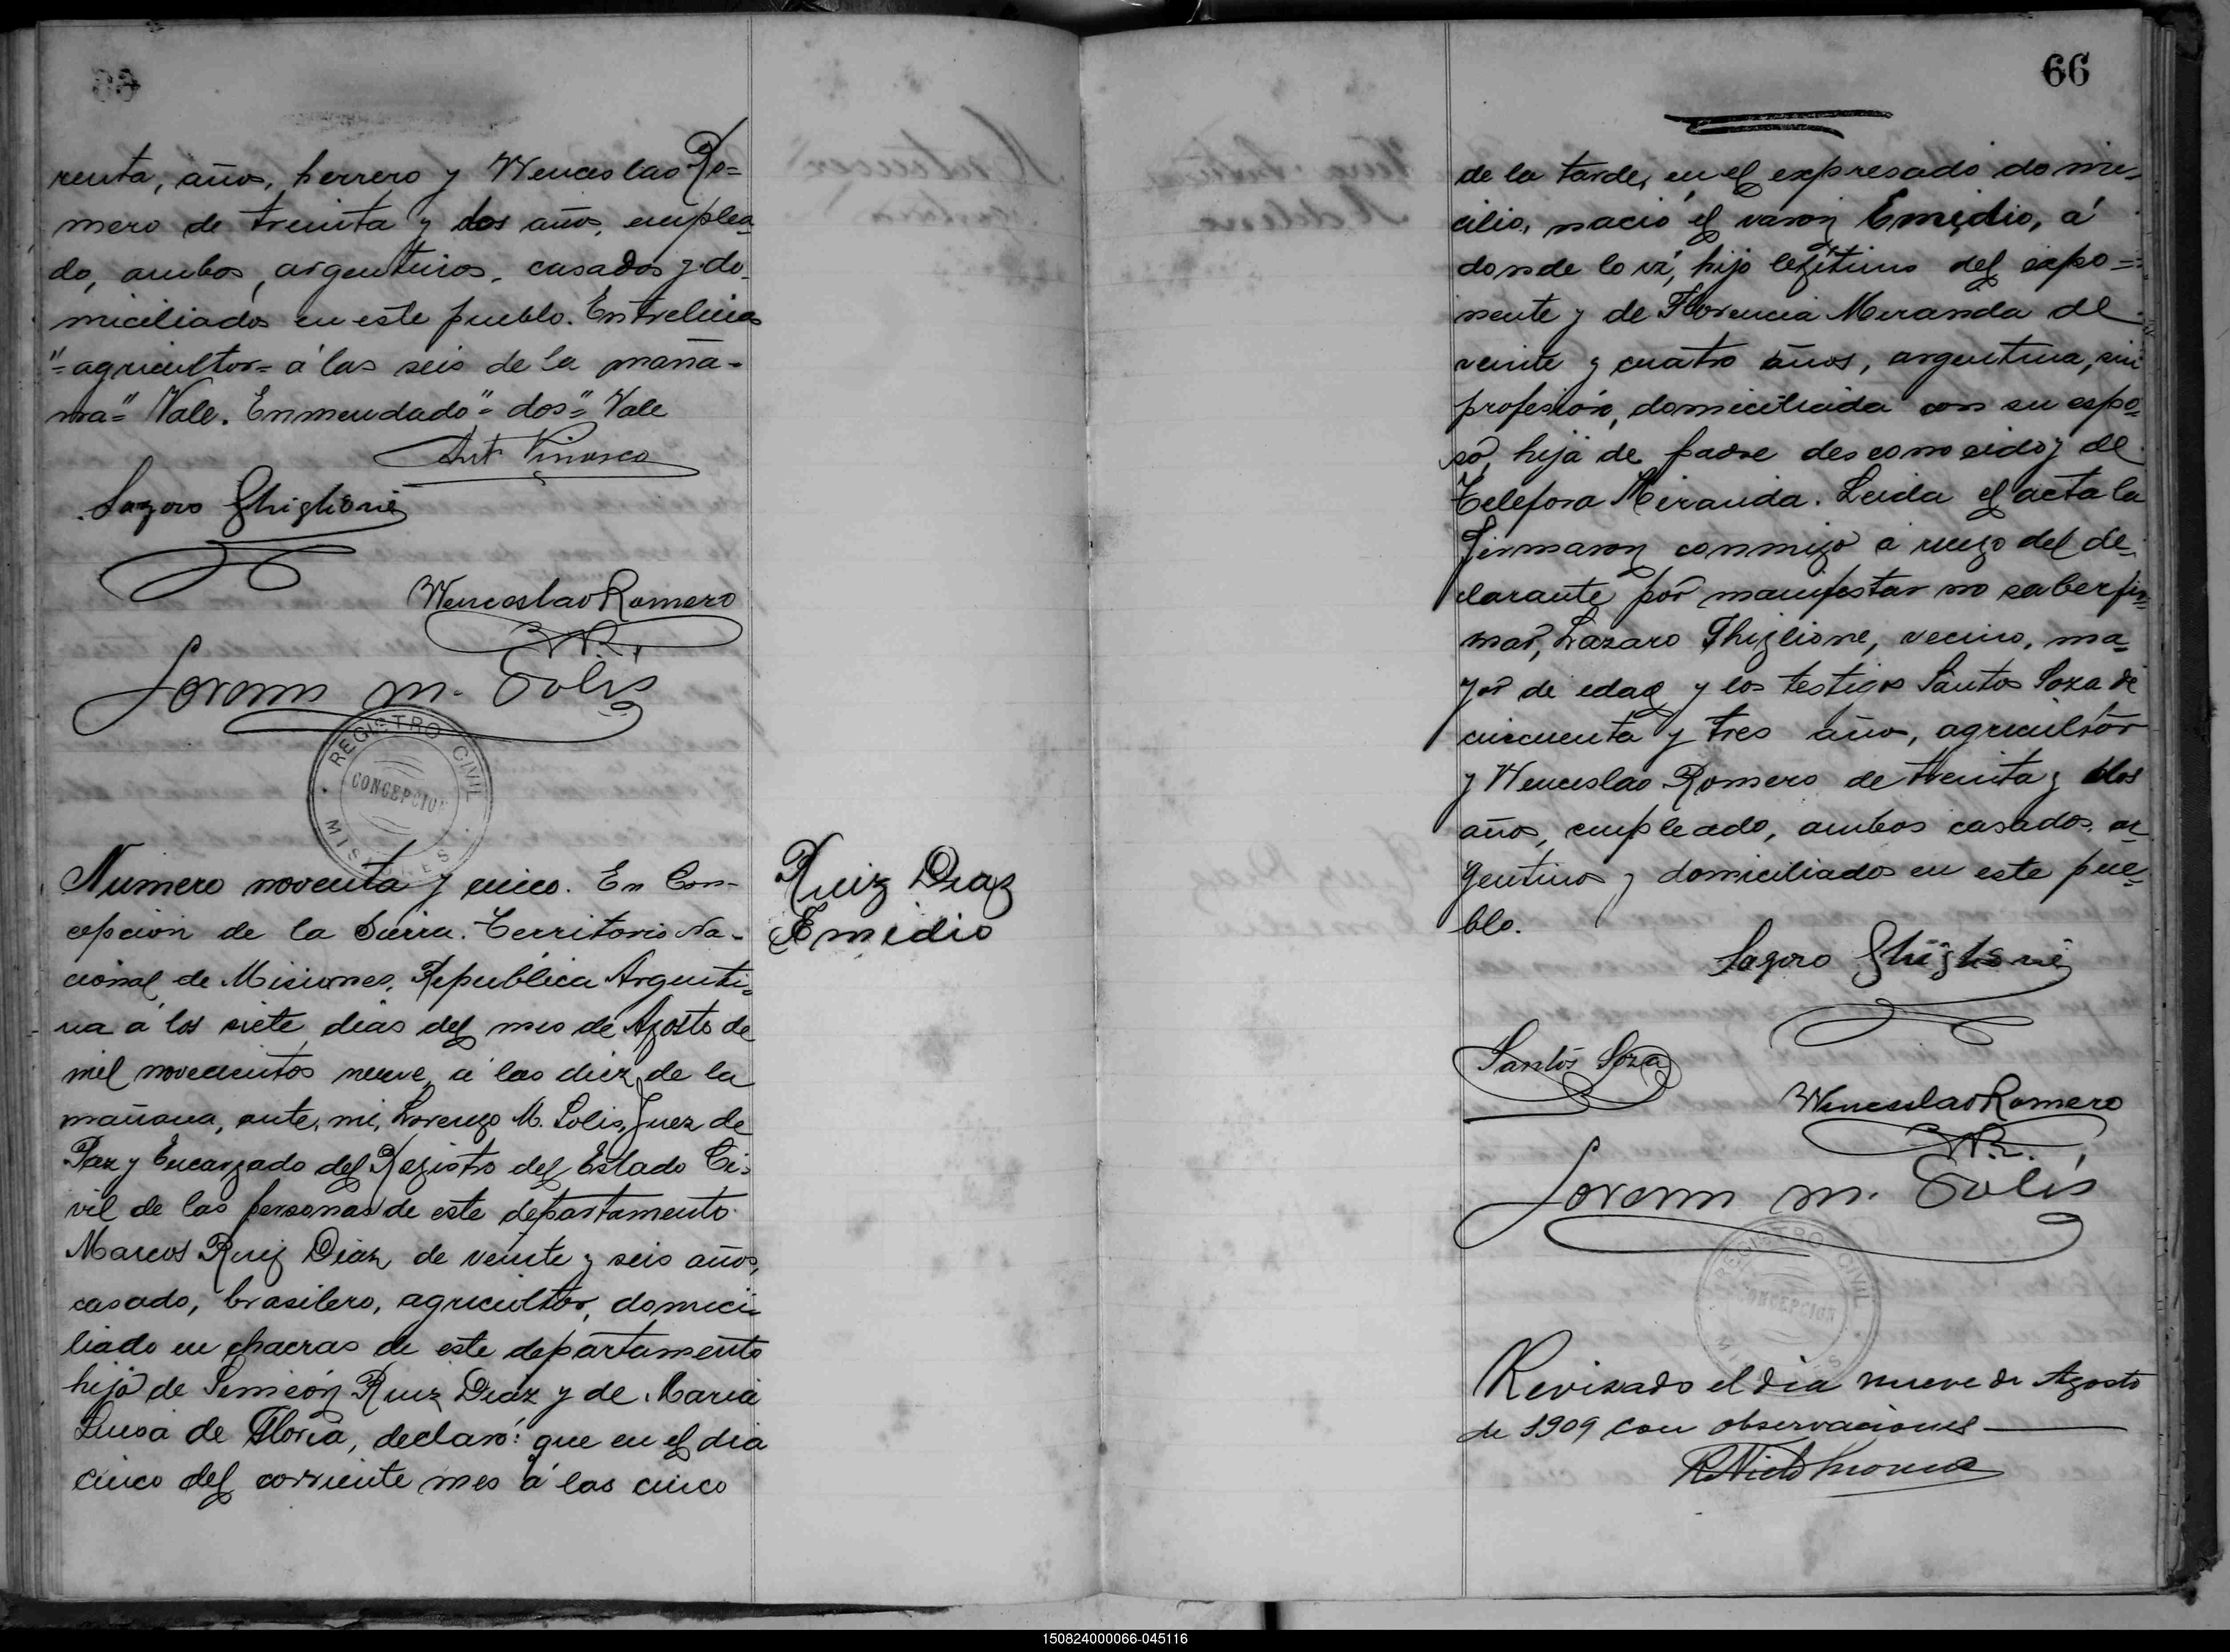 renta, años, herrero y Wenceslao Ro=
mero de treinta y dos años, emplea
do, ambos, argentinos, casados y do_
miciliados en este pueblo. Entrelineas
"= agricultor = á las seis de la maña-
na" Vale. Enmendado "dos" Vale
Ant Vinasco
Lazaro Ghiglione
Wenceslao Romero
W.R.
Lorenzo M. Solis
REGISTRO CIVIL
CONCEPCION
MISIONES
Numero noventa y cinco. En Con-
cepción de la Sierra. Territorio Na-
cional de Misiones, Republica Argenti=
na á los siete dias del mes de Agosto de
mil novecientos nueve, á las diez de la
mañana, ante, mi, Lorenzo M. Solis, Juez de
Paz y Encargado del Registro del Estado Ci-
vil de las personas de este departamento
Marcos Ruiz Diaz, de veinte y seis años,
casado, brasilero, agricultor, domici-
liado en chacras de este departamento
hijo de Simeón Ruiz Diaz y de Maria
Luisa de Floria, declaró: que en el dia
cinco del corriente mes á las cinco
Ruiz Diaz
Emidio
66
de la tarde, en el expresado domi-
cilio, nació el varon Emidio, á
donde lo vi, hijo legítimo del expo=
nente y de Florencia Meranda de
veinte y cuatro años, argentina, sin
profesión, domiciliada con su espo=
so, hija de padre desconocido y de
Telefora Miranda. Leida el acta la
firmaron conmigo á ruego del de-
clarante por manifestar no saber fir
mar, Lazaro Ghiglione, vecino, ma=
yor de edad y los testigos Santos Soza de
cincuenta y tres años, agricultor
y Wenceslao Romero de treinta y dos
años, empleado, ambos casados, ar
gentinos y domiciliados en este pue=
blo.
Lazaro Ghiglione
Santos Soza
Wenceslao Romero
W.R.
Lorenzo M. Solis
REGISTRO CIVIL
CONCEPCION
MISIONES
Revisado el dia nueve de Agosto
de 1909 con observaciones
150824000066-045116